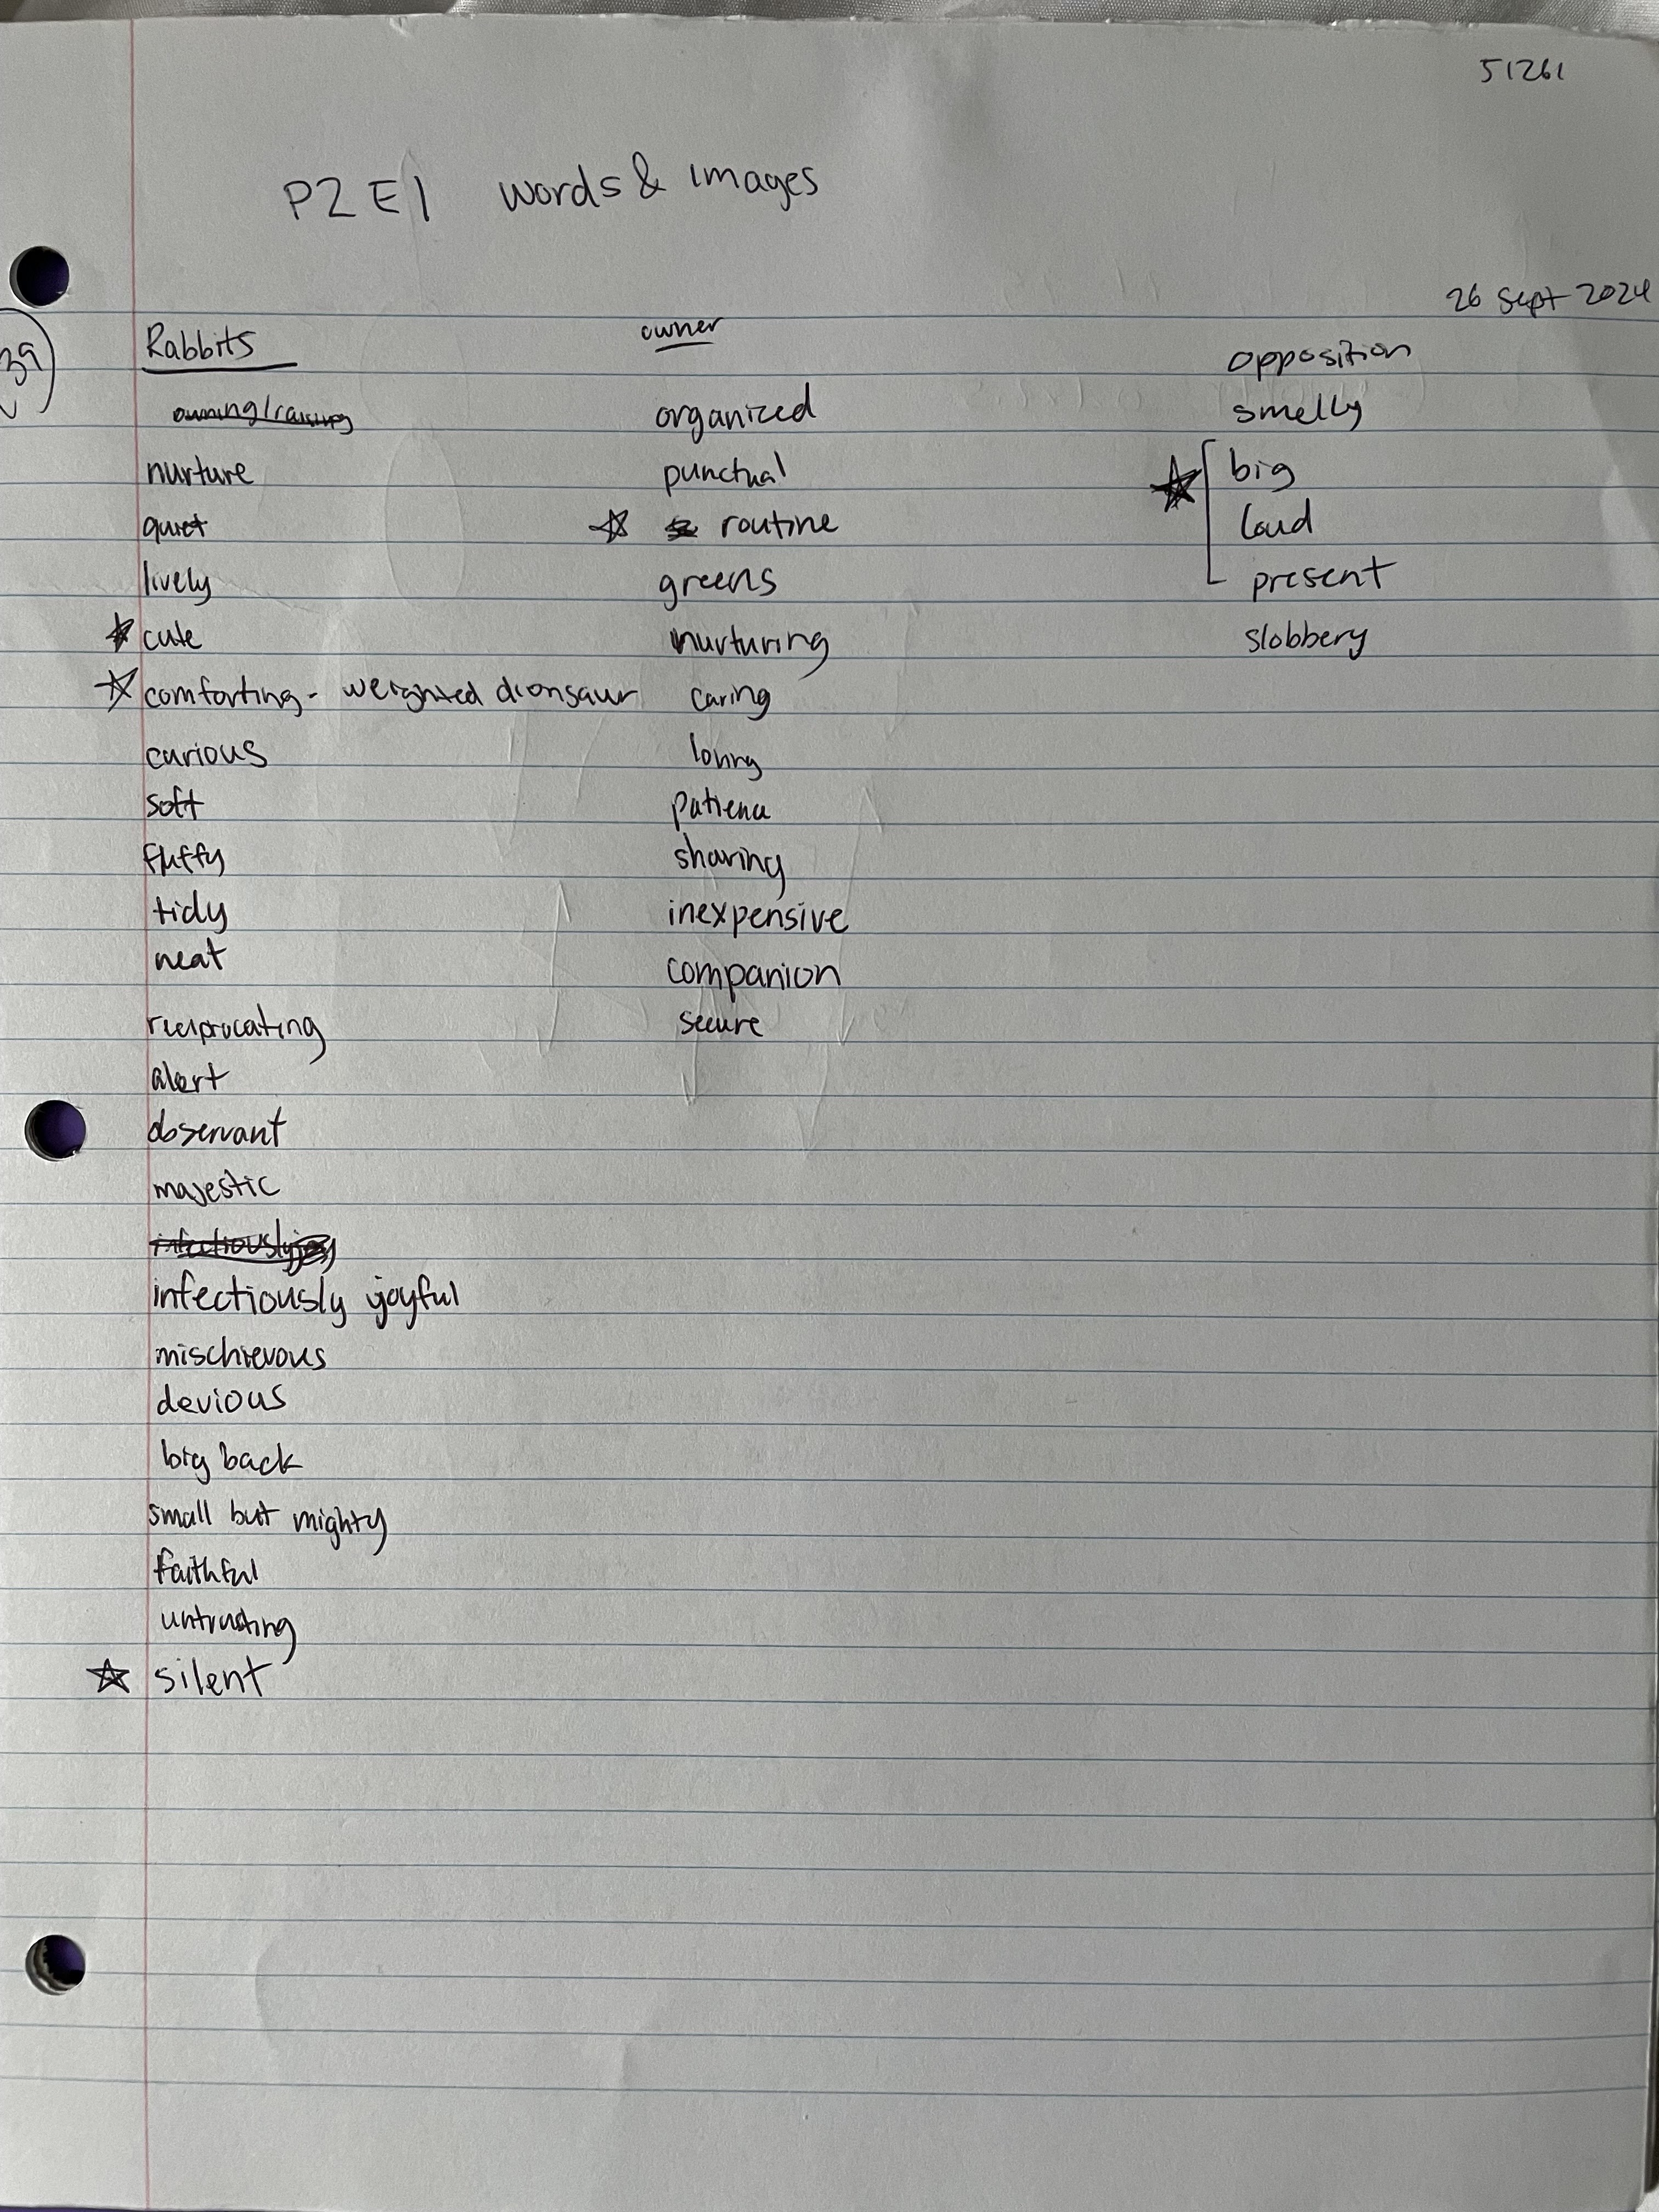 51261
P2 E1 words & images
26 Sept 2024
39
Rabbits
owning/raising
nurture
quiet
lively
cute
comforting - weighted dionsaur
curious
soft
fluffy
tidy
neat
reciprocating
alert
observant
majestic
infectiously joy
infectiously joyful
mischievous
devious
big back
small but mighty
faithful
untrusting
silent
owner
organized
punctual
routine
greens
nurturing
caring
loving
patience
sharing
inexpensive
companion
secure
opposition
smelly
big
loud
present
slobbery